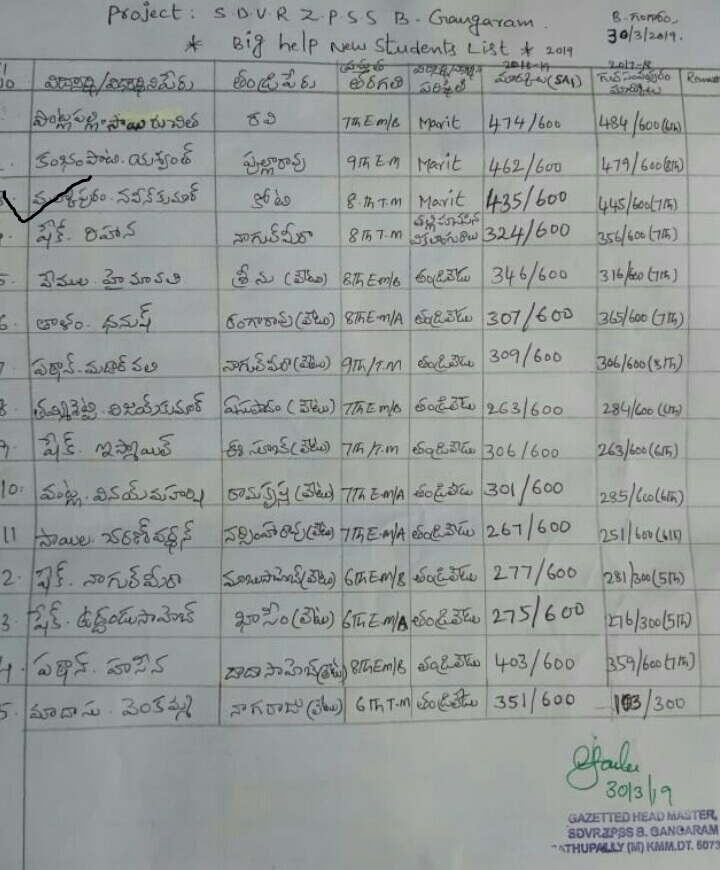 Project: S.D.V.R Z.P.S.S B. Gangaram. B. గంగారం,
* Big help New Students List * 2019 30/3/2019.
విద్యార్థి/విద్యార్థిని పేరు తండ్రి పేరు ప్రస్తుత తరగతి 2018-19 మార్కులు (SA1) 2017-18 మార్కులు
సాయి రుచిత రవి 7th E.M/B Marit 474/600 484/600(6th)
కంభంపాటి. యశ్వంత్ పుల్లారావు 9th E.M Marit 462/600 479/600(8th)
నవీన్ కుమార్ కోటి 8th T.M Marit 435/600 445/600(7th)
షేక్. రిహాన నాగుల్ మీరా 8th T.M 324/600 356/600(7th)
5. వేముల. హైమావతి శ్రీను (లేటు) 8th E.M/B తండ్రిలేడు 346/600 316/600(7th)
6. తాళం. ధనుష్ రంగారావు (లేటు) 8th E.M/A తండ్రిలేడు 307/600 365/600(7th)
7. పఠాన్. మదార్ వలి నాగుల్ మీరా (లేటు) 9th/T.M తండ్రిలేడు 309/600 306/600(8th)
8. విజయ్ కుమార్ ఏసుపాదం (లేటు) 7th E.M/B తండ్రిలేడు 263/600 284/600(6th)
9. షేక్. ఇస్మాయిల్ (లేటు) 7th/T.M తండ్రిలేడు 306/600 263/600(6th)
10. వినయ్ మహర్షి రామకృష్ణ (లేటు) 7th E.M/A తండ్రిలేడు 301/600 285/600(6th)
11 సాయిల. నర్సింహారావు (లేటు) 7th E.M/A తండ్రిలేడు 267/600 251/600(6th)
2. షేక్. నాగుల్ మీరా (లేటు) 6th E.M/B తండ్రిలేడు 277/600 281/300(5th)
3. షేక్. ఉద్దండుసాహెబ్ ఖాసీం (లేటు) 6th E.M/A తండ్రిలేడు 275/600 276/300(5th)
4. పఠాన్. హసీన దాదా సాహెబ్ (లేటు) 8th E.M/B తండ్రిలేడు 403/600 359/600(7th)
5. మాదాసు. వెంకమ్మ నాగరాజు (లేటు) 6th T.M తండ్రిలేడు 351/600 103/300
30/3/19
GAZETTED HEAD MASTER,
SDVRZPSS B. GANGARAM
SATHUPALLY (M) KMM.DT. 5073